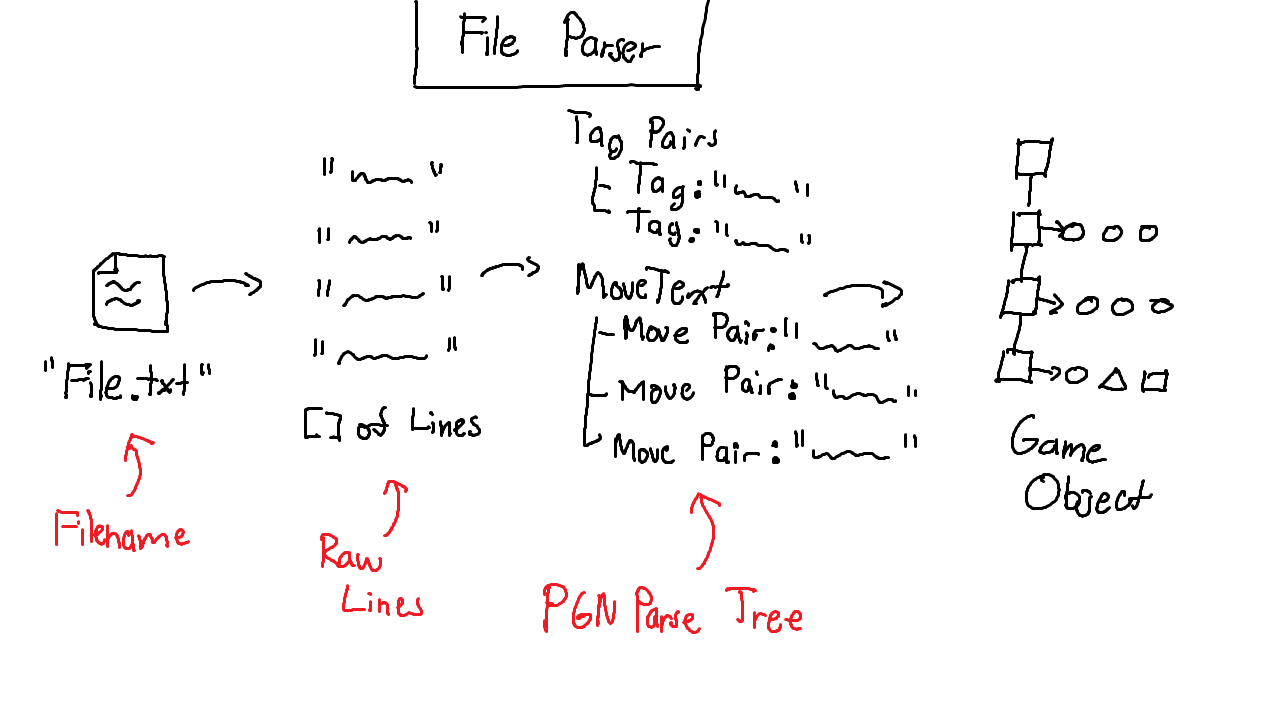 File Parser
"File.txt"
Filename
" "
" "
" "
" "
[] of Lines
Raw
Lines
Tag Pairs
Tag: " "
Tag: " "
MoveText
Move Pair: " "
Move Pair: " "
Move Pair: " "
PGN Parse Tree
Game
Object